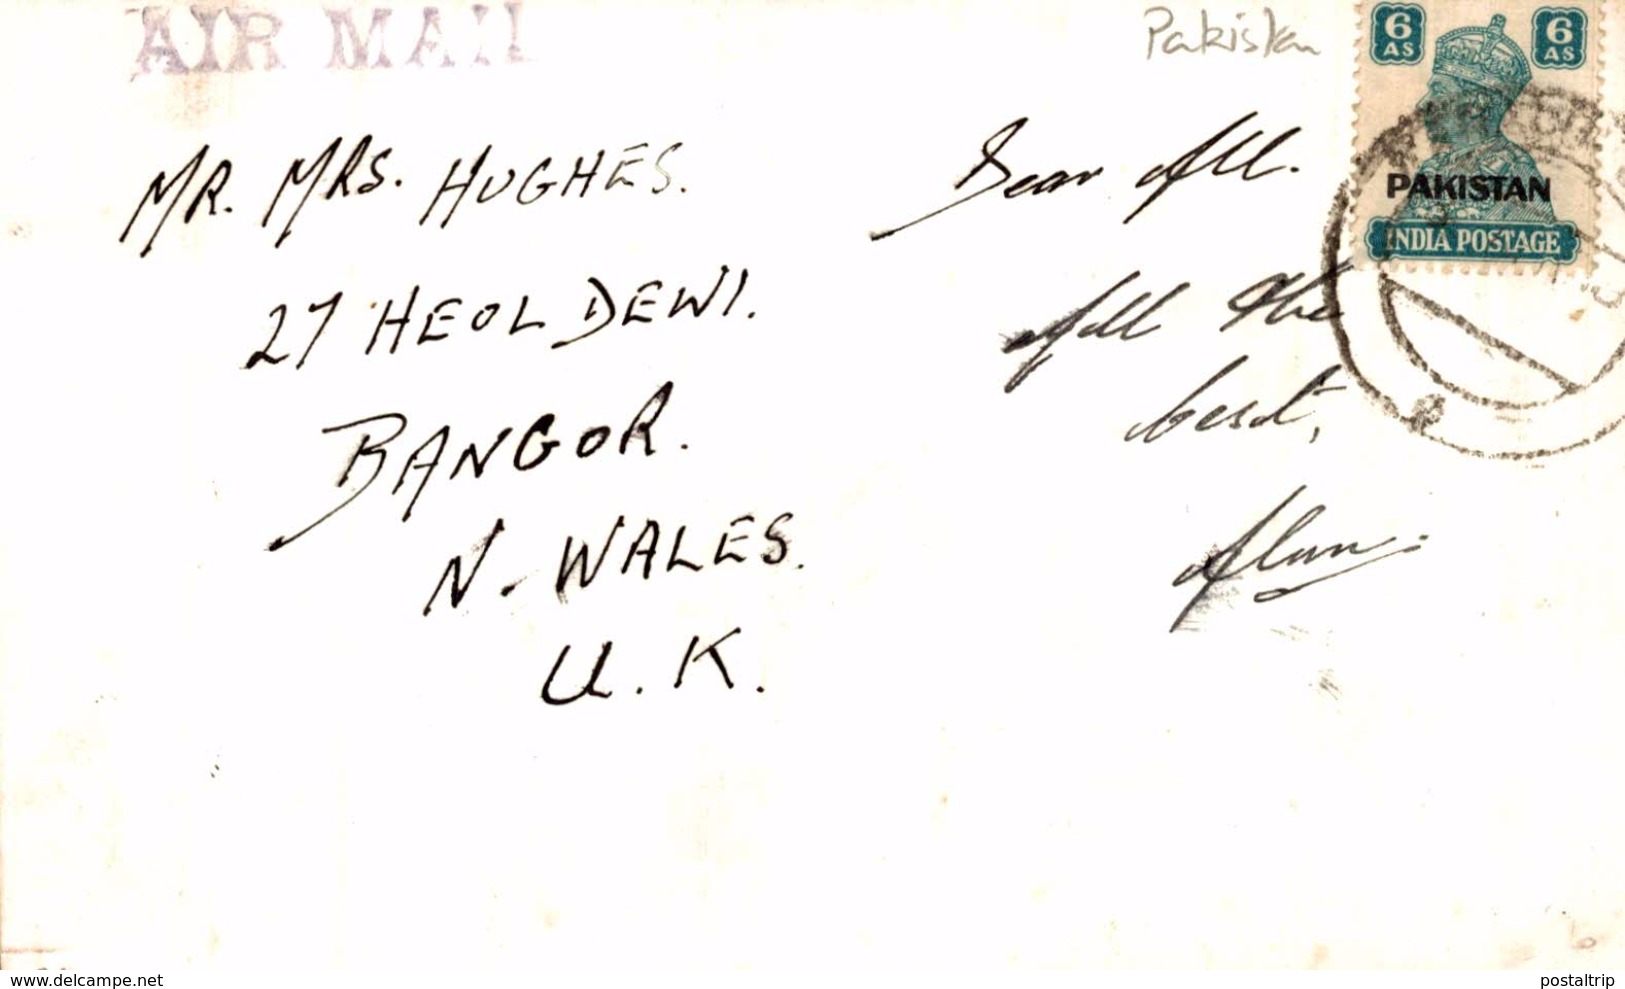 AIR MAIL
Pakistan
6 AS
6 AS
PAKISTAN
INDIA POSTAGE
MR. MRS. HUGHES.
27 HEOL DEWI.
BANGOR.
N. WALES.
U.K.
Dear All.
All the
best,
Alun.
www.delcampe.net
postaltrip